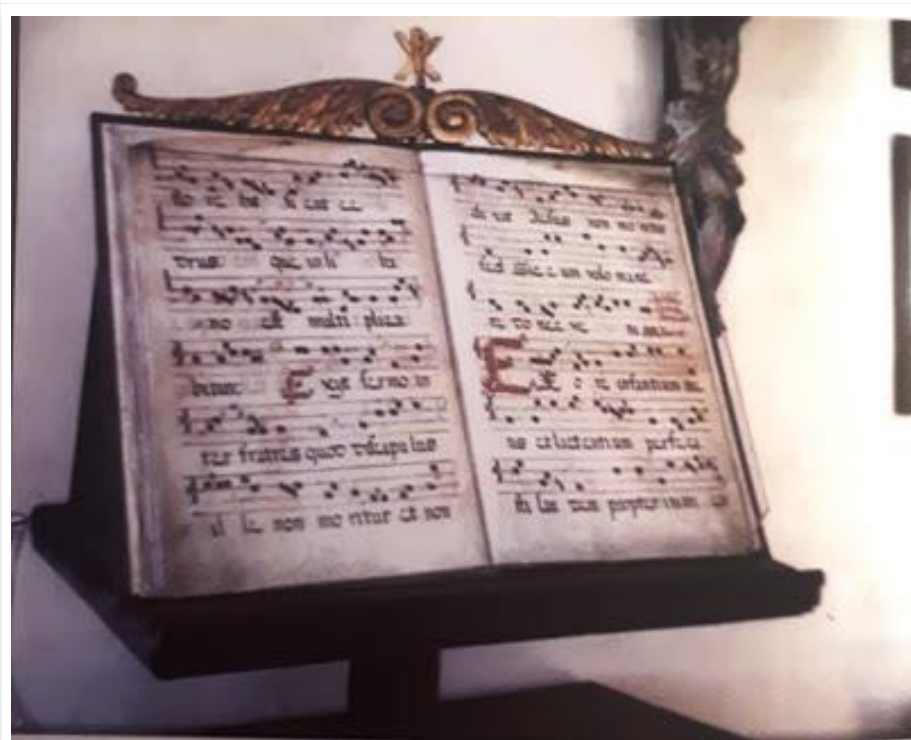 drus que in li ba
no est multi plica
bitur Exijt sermo in
ter fratres quod discipulus
il le non mo ritur et non
di xit Jesus non moritur
sed sic e um volo mane
re do nec ve
Ex o re infantium de
us et lactentium perfeci
sti lau dem propter inimi